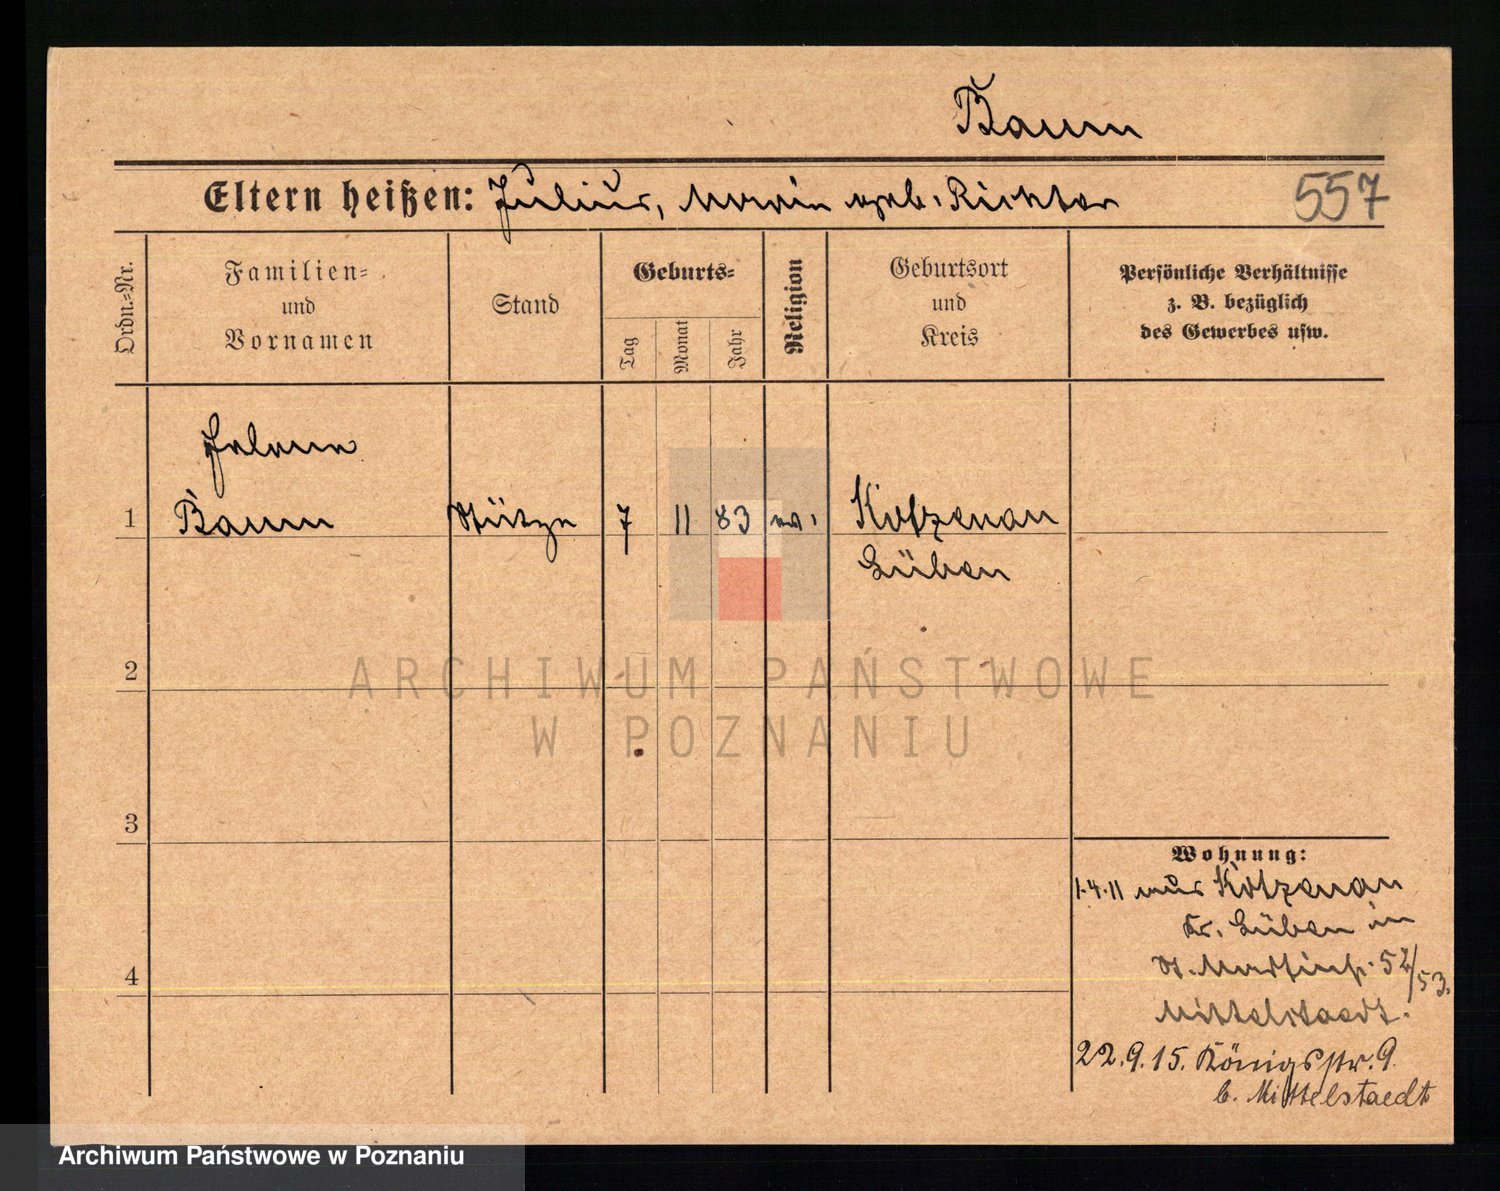 Baum
Eltern heißen: Julius, Maria geb. Richter
557
Ordn.=Nr.
Familien=
und
Vornamen
Stand
Geburts=
Tag
Monat
Jahr
Religion
Geburtsort
und
Kreis
Persönliche Verhältnisse
z. B. bezüglich
des Gewerbes usw.
Helene
1 Baum Stütze 7 11 83 ev. Kotzenau
Lüben
2
3
4
Wohnung:
1.4.11 aus Kotzenau
Kr. Lüben in
St. Martinstr. 52/53.
Mittelstaedt.
22.9.15. Königsstr. 9.
b. Mittelstaedt
ARCHIWUM PAŃSTWOWE
W POZNANIU
Archiwum Państwowe w Poznaniu